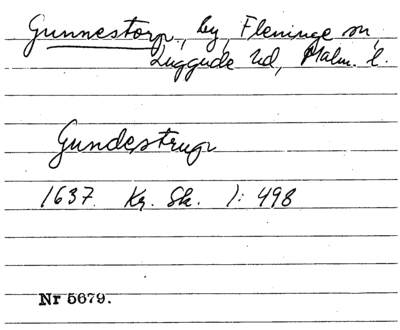 Gunnestorp, by, Fleninge sn,
Luggude hd, Malm. l.
Gundestrup
1637. Kr. Sk. 1: 498
Nr 5679.